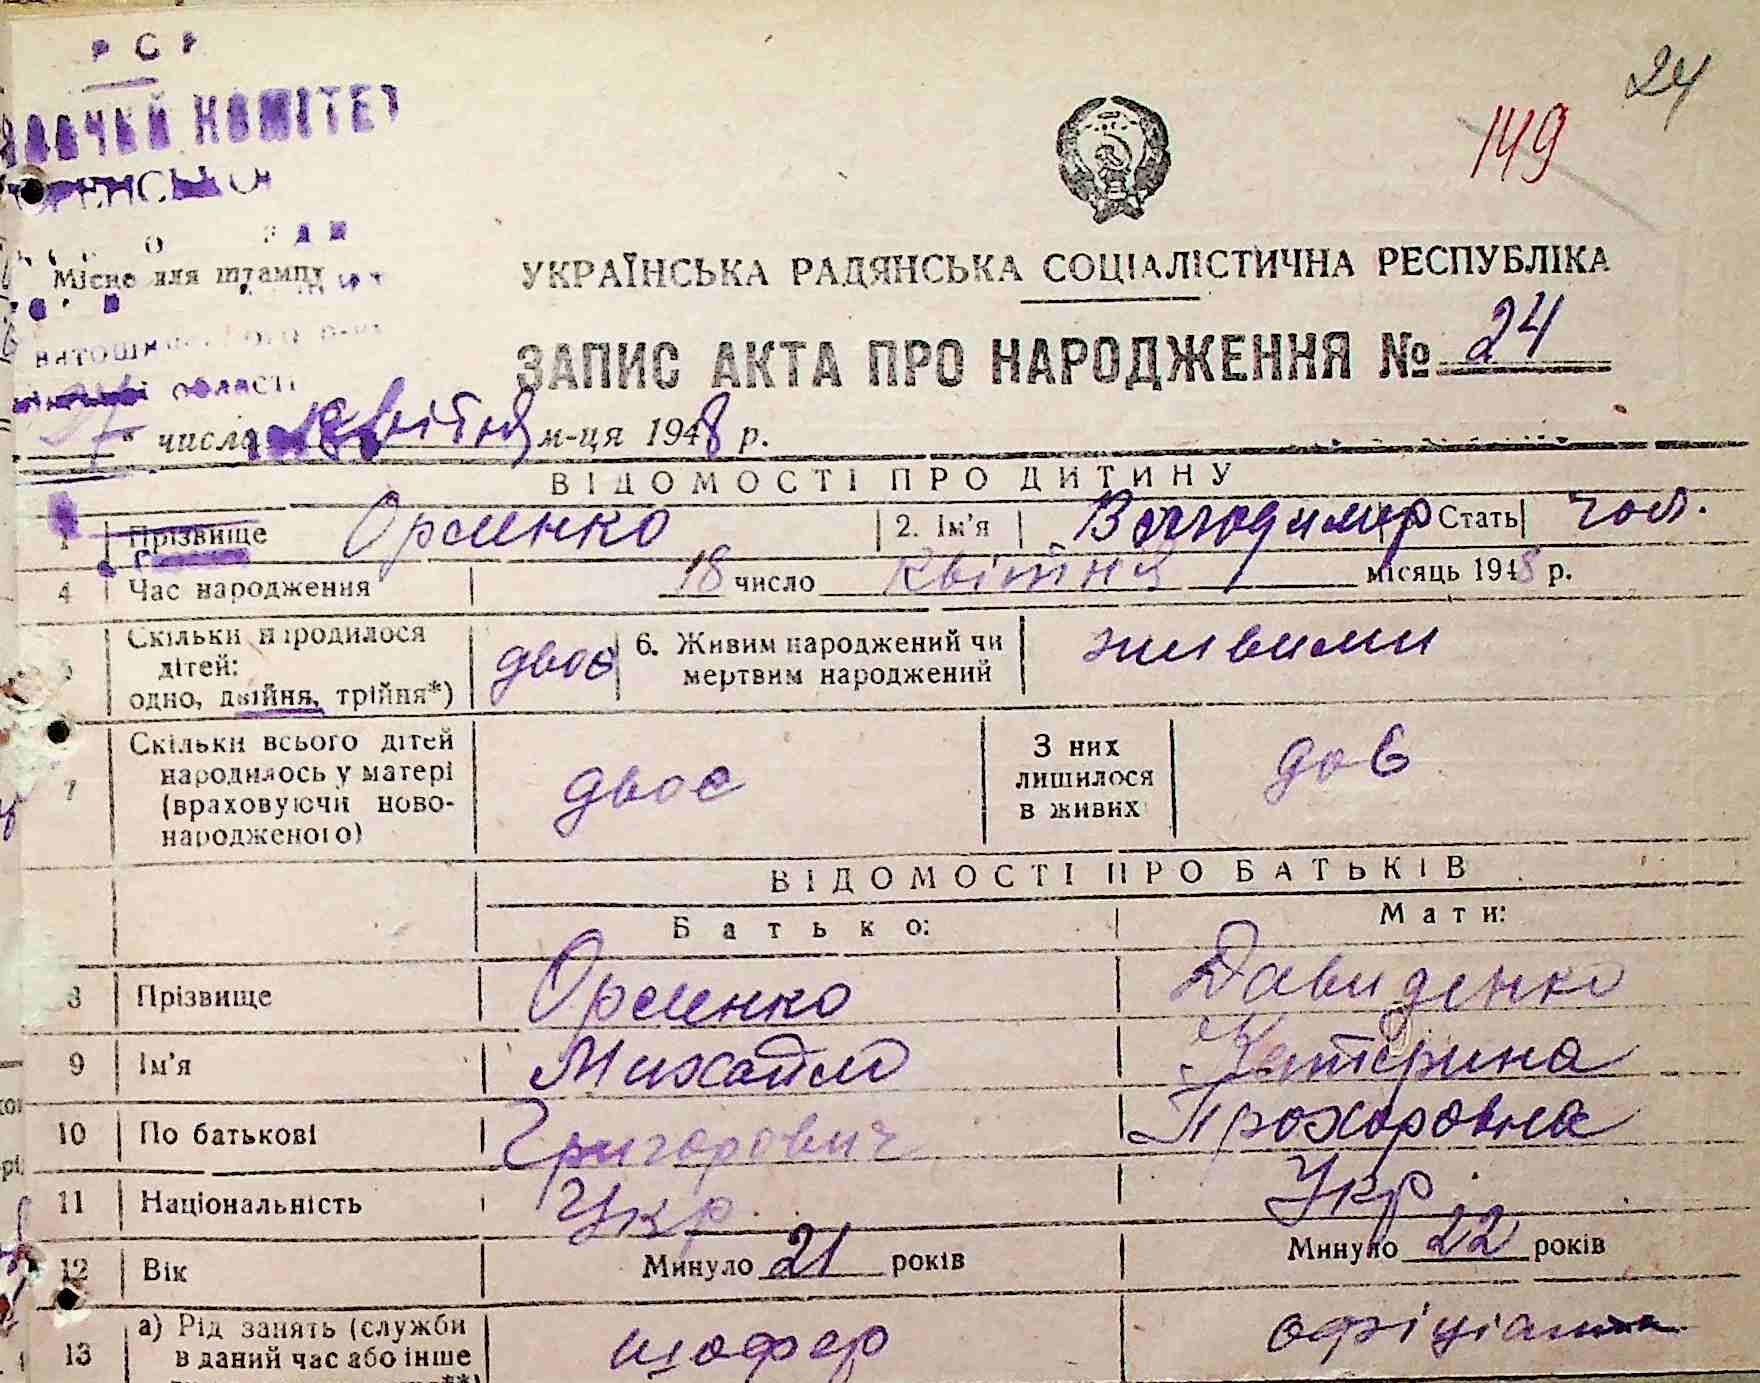 Р С Р
КОМІТЕТ
24
149
Місце для штампу
УКРАЇНСЬКА РАДЯНСЬКА СОЦІАЛІСТИЧНА РЕСПУБЛІКА
ОБЛАСТІ
ЗАПИС АКТА ПРО НАРОДЖЕННЯ № 24
" числа квітня м-ця 1948 р.
ВІДОМОСТІ ПРО ДИТИНУ
1 Прізвище Орленко 2. Ім'я Володимир Стать чол.
4 Час народження 18 число квітня місяць 1948 р.
5 Скільки народилося дітей: одно, двійня, трійня*) двоє 6. Живим народжений чи мертвим народжений живими
7 Скільки всього дітей народилось у матері (враховуючи новонародженого) двоє З них лишилося в живих
ВІДОМОСТІ ПРО БАТЬКІВ
Батько: Мати:
8 Прізвище Орленко Давиденко
9 Ім'я Михайло Катерина
10 По батькові Григорович Прохоровна
11 Національність Укр Укр
12 Вік Минуло 21 років Минуло 22 років
13 а) Рід занять (служби в даний час або інше шофер офіціантка